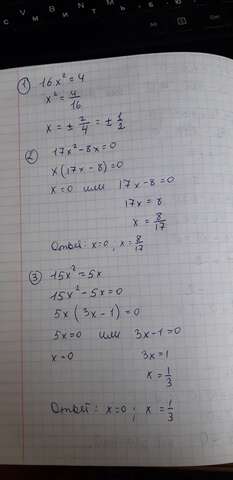 ① 16x² = 4
x² = 4/16
x = ± 2/4 = ± 1/2
② 17x² - 8x = 0
x(17x - 8) = 0
x = 0 или 17x - 8 = 0
17x = 8
x = 8/17
Ответ: x = 0, x = 8/17
③ 15x² = 5x
15x² - 5x = 0
5x(3x - 1) = 0
5x = 0 или 3x - 1 = 0
x = 0 3x = 1
x = 1/3
Ответ: x = 0; x = 1/3